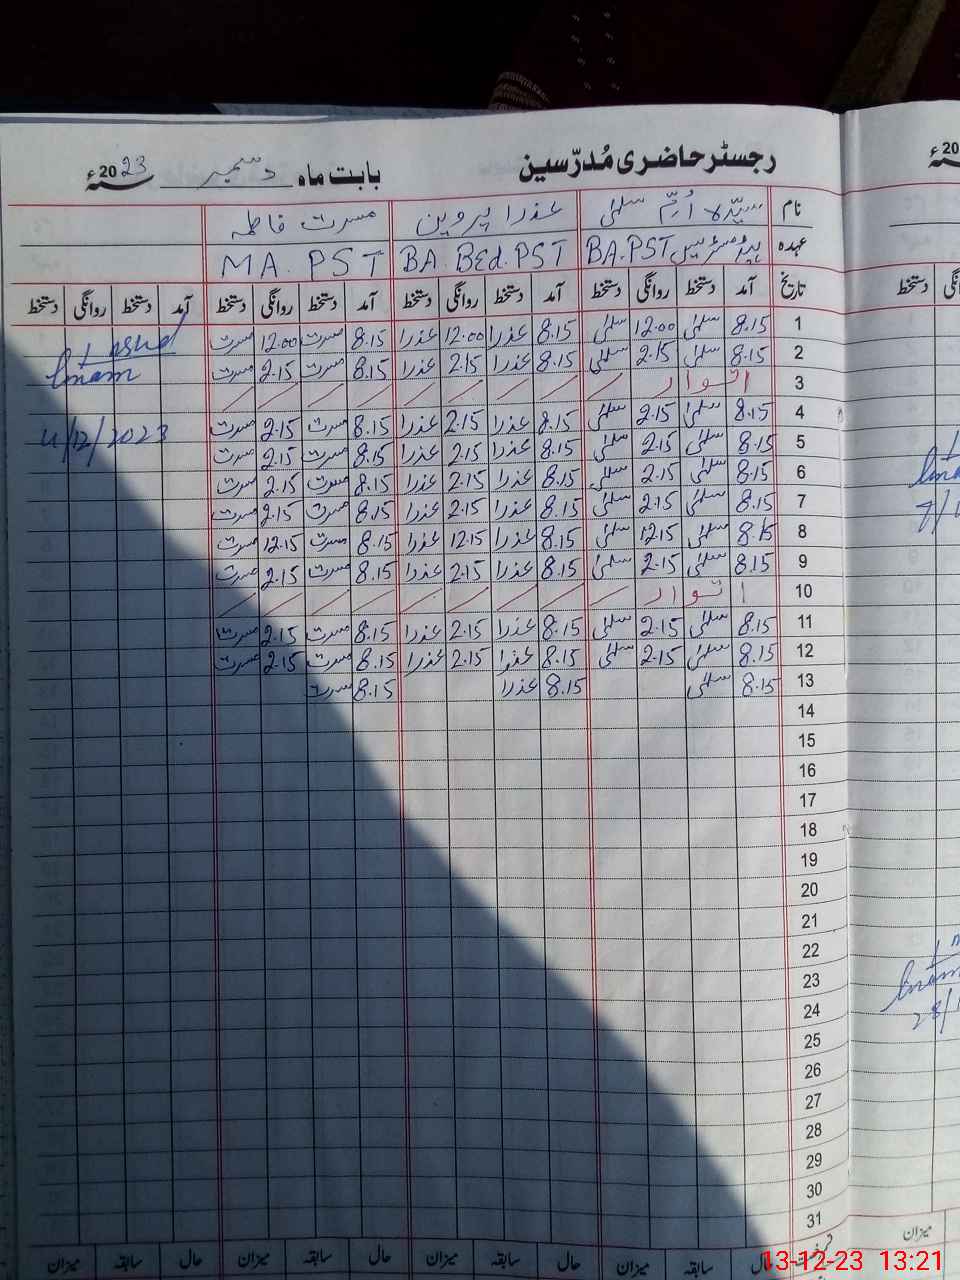 رجسٹر حاضری مُدرّسین بابت ماہ دسمبر 2023ء
نام سیّدہ اُمّ سلمیٰ عذرا پروین مسرت فاطمہ
عہدہ ہیڈمسٹریس BA.PST BA. BEd. PST MA. PST
تاریخ آمد دستخط روانگی دستخط آمد دستخط روانگی دستخط آمد دستخط روانگی دستخط آمد دستخط روانگی دستخط
1 8.15 سلمیٰ 12.00 سلمیٰ 8.15 عذرا 12.00 عذرا 8.15 مسرت 12.00 مسرت
2 8.15 سلمیٰ 2.15 سلمیٰ 8.15 عذرا 2.15 عذرا 8.15 مسرت 2.15 مسرت
3 اتوار
4 8.15 سلمیٰ 2.15 سلمیٰ 8.15 عذرا 2.15 عذرا 8.15 مسرت 2.15 مسرت
5 8.15 سلمیٰ 2.15 سلمیٰ 8.15 عذرا 2.15 عذرا 8.15 مسرت 2.15 مسرت
6 8.15 سلمیٰ 2.15 سلمیٰ 8.15 عذرا 2.15 عذرا 8.15 مسرت 2.15 مسرت
7 8.15 سلمیٰ 2.15 سلمیٰ 8.15 عذرا 2.15 عذرا 8.15 مسرت 2.15 مسرت
8 8.15 سلمیٰ 12.15 سلمیٰ 8.15 عذرا 12.15 عذرا 8.15 مسرت 12.15 مسرت
9 8.15 سلمیٰ 2.15 سلمیٰ 8.15 عذرا 2.15 عذرا 8.15 مسرت 2.15 مسرت
10 اتوار
11 8.15 سلمیٰ 2.15 سلمیٰ 8.15 عذرا 2.15 عذرا 8.15 مسرت 2.15 مسرت
12 8.15 سلمیٰ 2.15 سلمیٰ 8.15 عذرا 2.15 عذرا 8.15 مسرت 2.15 مسرت
13 8.15 سلمیٰ 8.15 عذرا 8.15 مسرت
14
15
16
17
18
19
20
21
22
23
24
25
26
27
28
29
30
31
حال سابقہ میزان حال سابقہ میزان حال سابقہ میزان حال سابقہ میزان
Imam
11/12/2023
20
دستخط
میزان
13-12-23 13:21